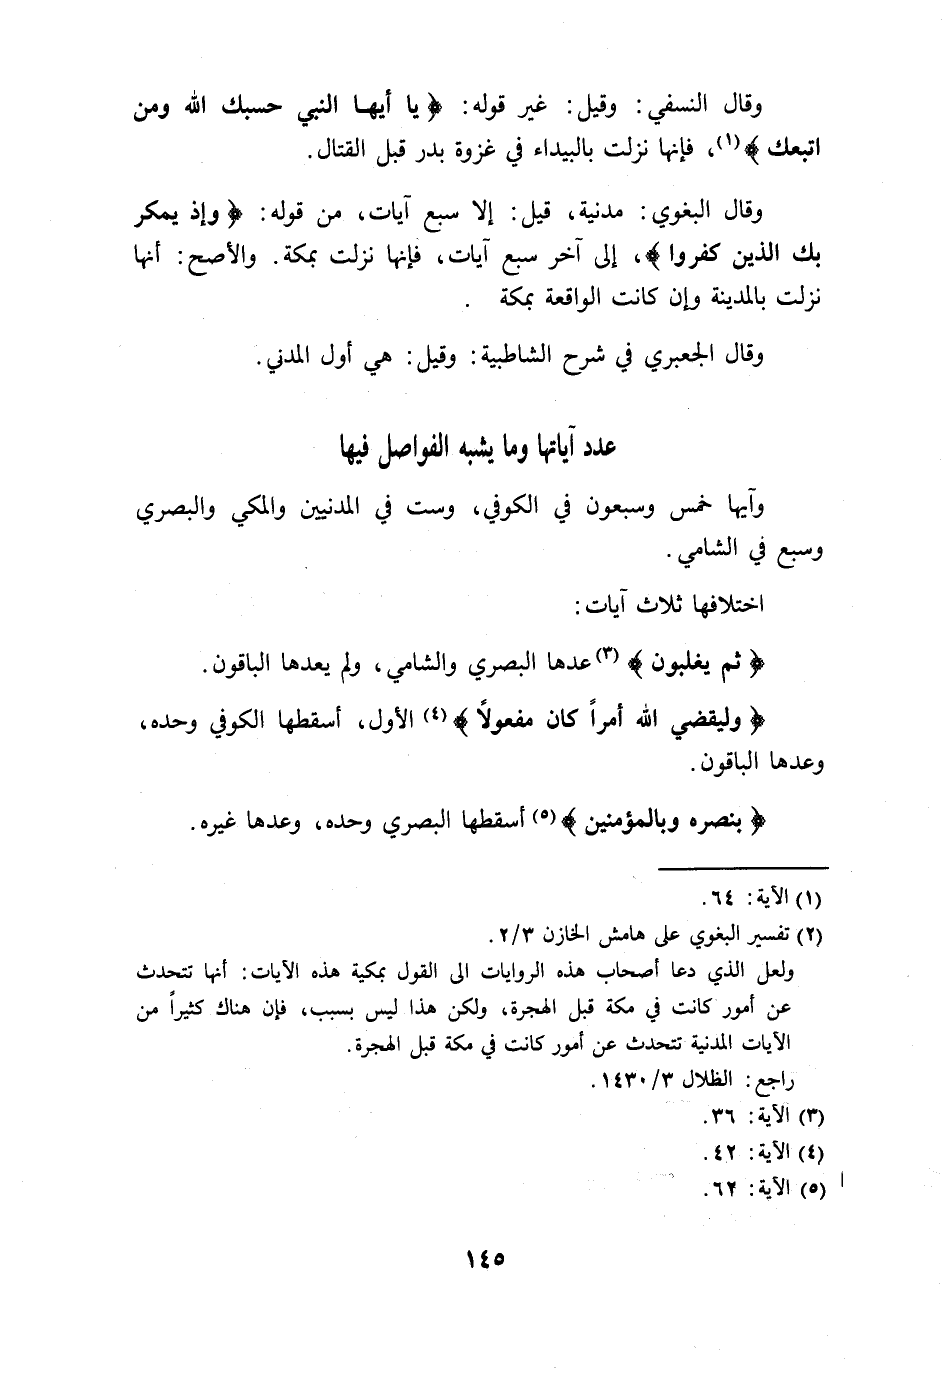 وقال النسفي: وقيل: غير قوله: ﴿ يا أيها النبي حسبك الله ومن
اتبعك ﴾(١)، فإنها نزلت بالبيداء في غزوة بدر قبل القتال.
وقال البغوي: مدنية، قيل: إلا سبع آيات، من قوله: ﴿ وإذ يمكر
بك الذين كفروا ﴾، إلى آخر سبع آيات، فإنها نزلت بمكة. والأصح: أنها
نزلت بالمدينة وإن كانت الواقعة بمكة .
وقال الجعبري في شرح الشاطبية: وقيل: هي أول المدني.
عدد آياتها وما يشبه الفواصل فيها
وآيها خمس وسبعون في الكوفي، وست في المدنيين والمكي والبصري
وسبع في الشامي.
اختلافها ثلاث آيات:
﴿ ثم يغلبون ﴾(٣) عدها البصري والشامي، ولم يعدها الباقون.
﴿ وليقضي الله أمراً كان مفعولاً ﴾(٤) الأول، أسقطها الكوفي وحده،
وعدها الباقون.
﴿ بنصره وبالمؤمنين ﴾(٥) أسقطها البصري وحده، وعدها غيره.
(١) الآية: ٦٤.
(٢) تفسير البغوي على هامش الخازن ٢/٣.
ولعل الذي دعا أصحاب هذه الروايات الى القول بمكية هذه الآيات: أنها تتحدث
عن أمور كانت في مكة قبل الهجرة، ولكن هذا ليس بسبب، فإن هناك كثيراً من
الآيات المدنية تتحدث عن أمور كانت في مكة قبل الهجرة.
راجع: الظلال ١٤٣٠/٣.
(٣) الآية: ٣٦.
(٤) الآية: ٤٢.
(٥) الآية: ٦٢.
١٤٥